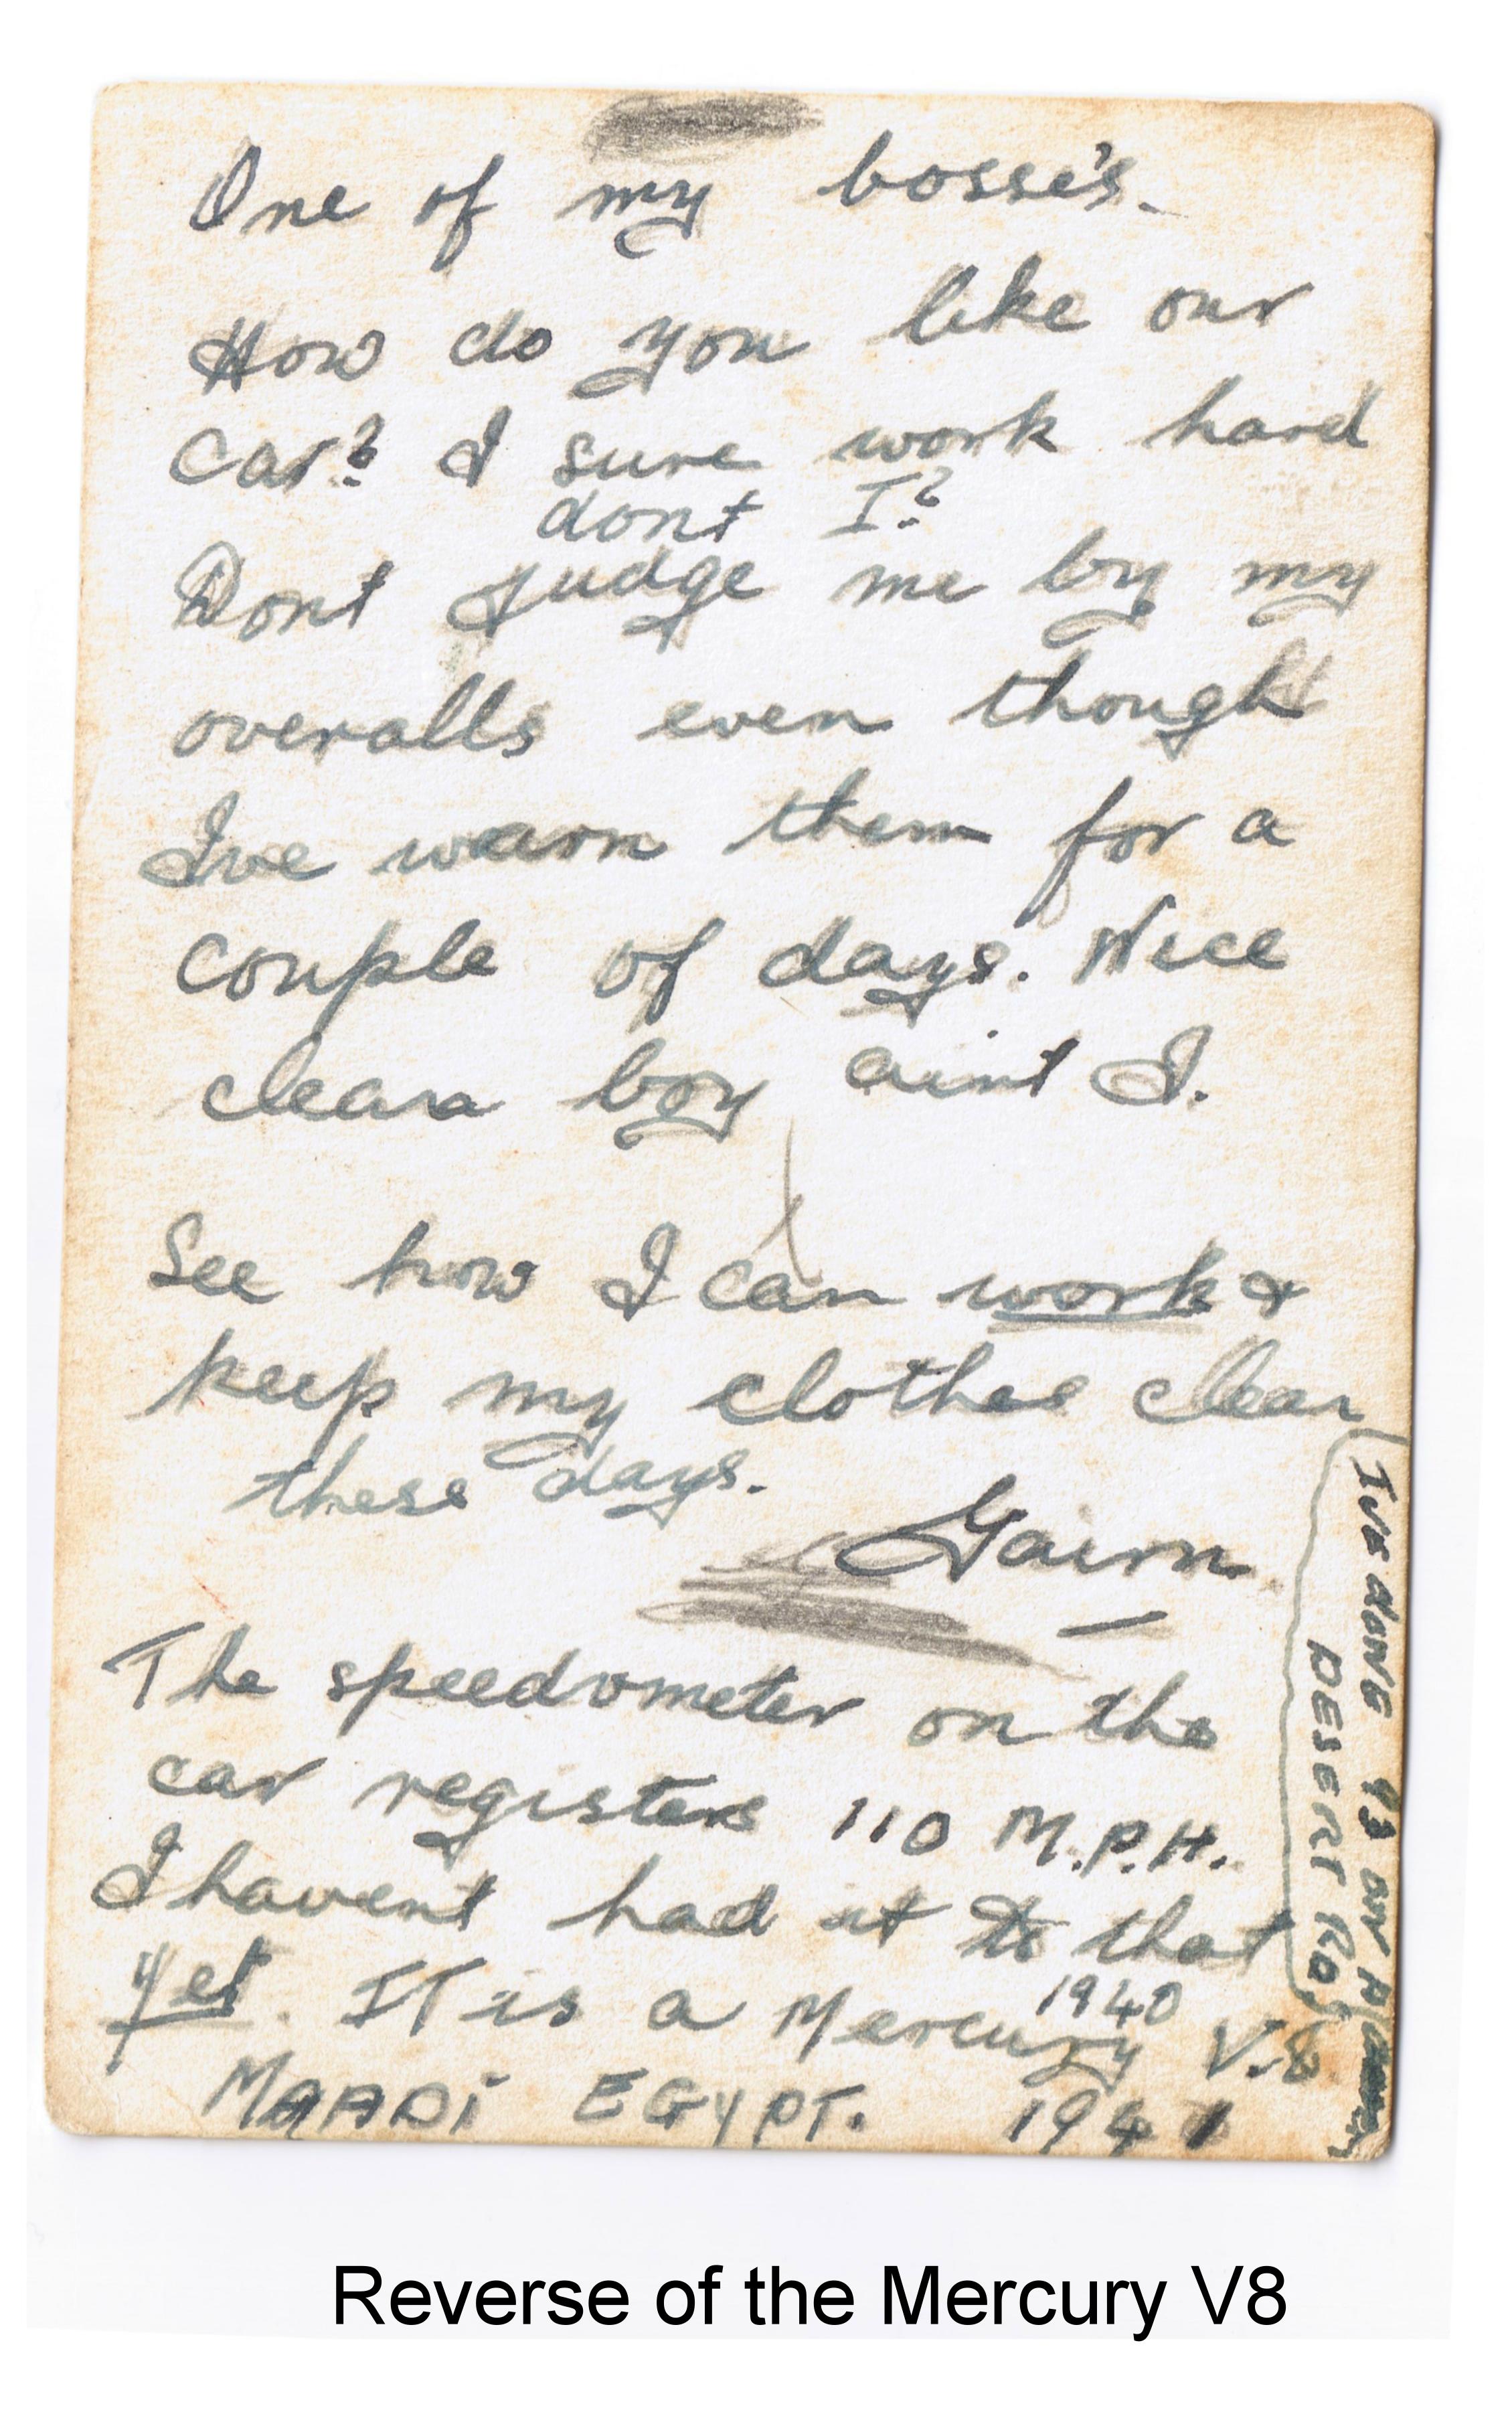 One of my bosse's.
How do you like our
car? I sure work hard
dont I?
Dont judge me by my
overalls even though
I've warn them for a
couple of days. Nice
clean boy aint I.
See how I can work &
keep my clothes clean
these days.
Gairn.
The speedometer on the
car registers 110 M.P.H.
I havent had it to that
yet. IT is a Mercury 1940 V.8
MAADI EGYPT. 1941
IVE DONE 93 ON A
DESERT RD.
Reverse of the Mercury V8